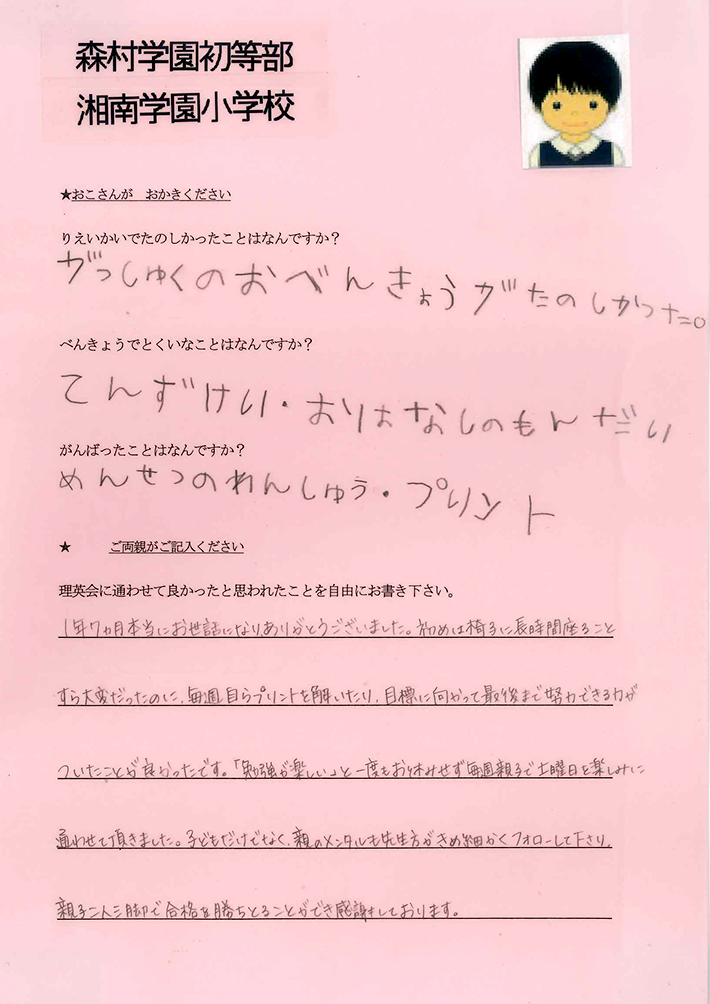 森村学園初等部
湘南学園小学校
★おこさんが　おかきください
りえいかいでたのしかったことはなんですか？
がっしゅくのおべんきょうがたのしかった。
べんきょうでとくいなことはなんですか？
てんずけい・おはなしのもんだい
がんばったことはなんですか？
めんせつのれんしゅう・プリント
★　ご両親がご記入ください
理英会に通わせて良かったと思われたことを自由にお書き下さい。
1年7ヵ月本当にお世話になりありがとうございました。初めは椅子に長時間座ること
すら大変だったのに、毎週自らプリントを解いたり、目標に向かって最後まで努力できる力が
ついたことが良かったです。「勉強が楽しい」と一度もお休みせず毎週親子で土曜日を楽しみに
通わせて頂きました。子どもだけでなく、親のメンタルも先生方がきめ細かくフォローして下さり、
親子二人三脚で合格を勝ちとることができ感謝しております。